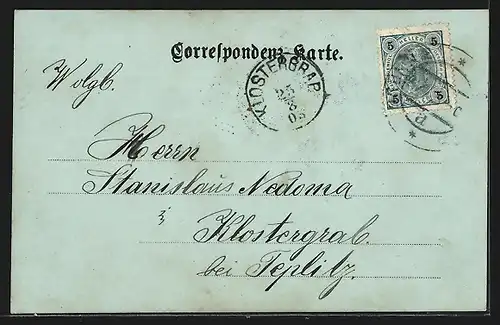 Correspondenz-Karte.
Wolgb.
KLOSTERGRAB
23
3
03
5 HELLER 5
5 5
Herrn
Stanislaus Nedoma
Klostergrab.
bei Teplitz.